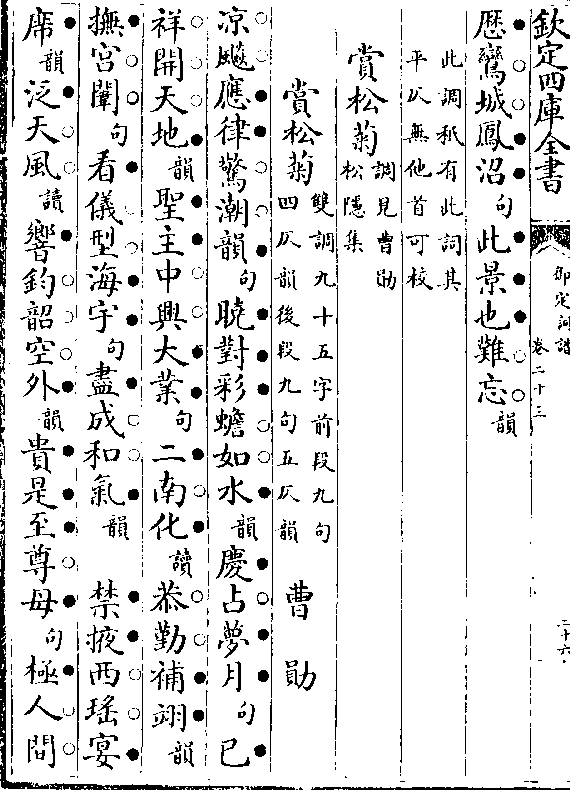 欽定四庫全書 御定詞譜 卷二十三 二十六
歴鸞城鳳沼句此景也難忘韻
此調秖有此詞其
平仄無他首可校
賞松菊調見曹勛
松隱集
賞松菊雙調九十五字前段九句
四仄韻後段九句五仄韻 曹勛
凉飈應律驚潮韻句曉對彩蟾如水韻慶占夢月句已
祥開天地韻聖主中興大業句二南化讀恭勤補翊韻
撫宮闈句看儀型海宇句盡成和氣韻 禁掖西瑤宴
席韻泛天風讀響鈞韶空外韻貴是至尊母句極人間